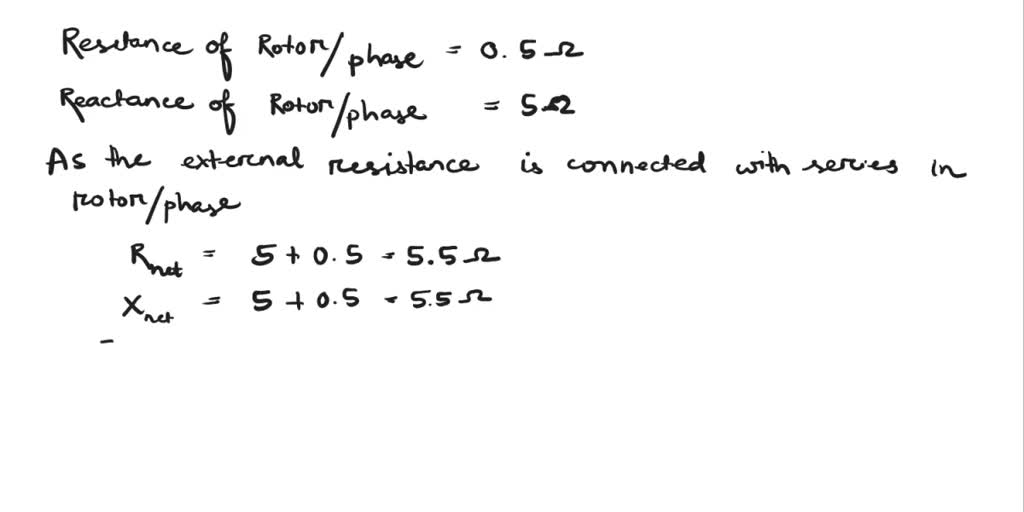 Resctance of Rotor/phase = 0.5 Ω
Reactance of Rotor/phase = 5Ω
As the external resistance is connected with series in
rotor/phase
Rnet = 5 + 0.5 = 5.5 Ω
Xnet = 5 + 0.5 = 5.5 Ω